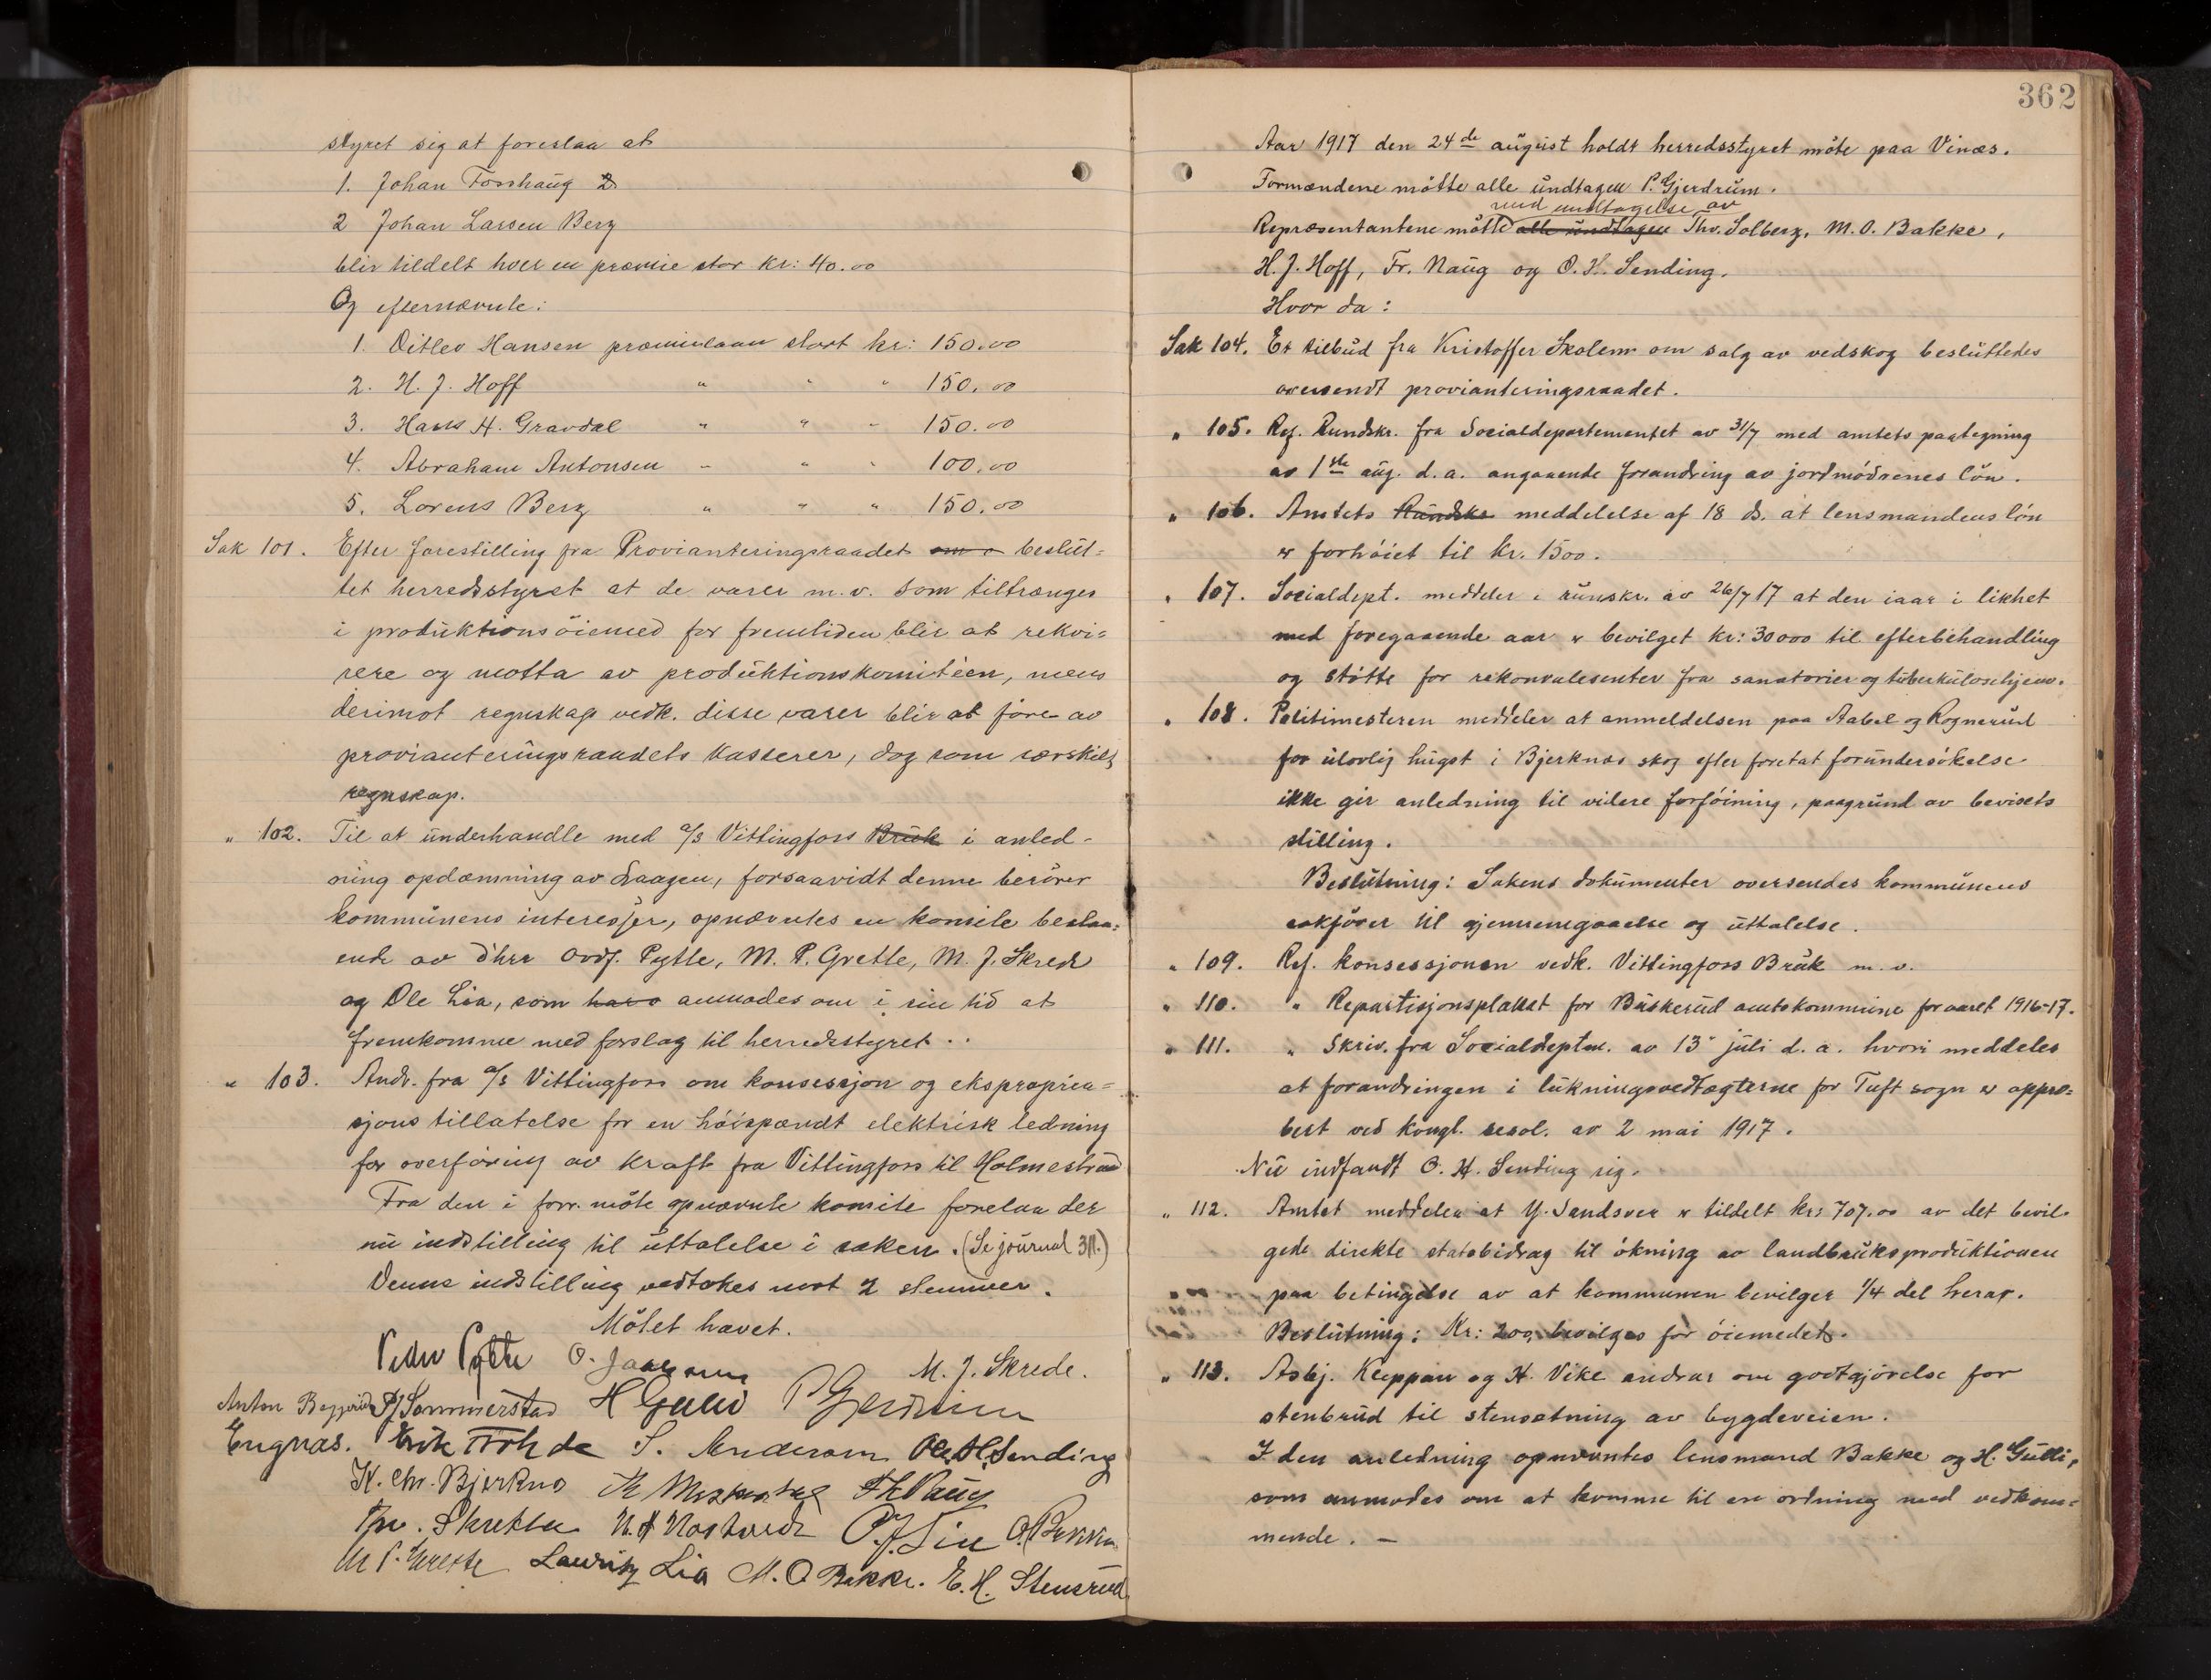 styret sig at foreslaa at
1. Johan Fosshaug
2 Johan Larsen Berg
blir tildelt hver en præmie stor kr: 40.00
Og efternævnte:
1. Ditlev Hansen præmielaan stort kr: 150.00
2. H. J. Hoff " " " 150.00
3. Hans H. Gravdal " " " 150.00
4. Abraham Antonsen " " " 100.00
5. Lorens Berg " " " 150.00
Sak 101. Efter forestilling fra Provianteringsraadet beslut-
tet herredsstyret at de varer m.v. som tiltrænges
i produktionsøiemed for fremtiden blir at rekvi-
rere og motta av produktionskomitéen, mens
derimot regnskap vedk. disse varer blir at føre av
provianteringsraadets kasserer, dog som særskilt
regnskap.
" 102. Til at underhandle med a/s Vittingfoss Bruk i anled-
ning opdæmning av Laagen, forsaavidt denne berører
kommunens interesser, opnævntes en komite bestaa-
ende av d'hrr ordf. Pytte, M. P. Grette, M. J. Skrede
og Ole Lia, som anmodes om i sin tid at
fremkomme med forslag til herredsstyret.
" 103. Andr. fra a/s Vittingfoss om konsessjon og ekspropria-
sjons tillatelse for en høispændt elektrisk ledning
for overføring av kraft fra Vittingfoss til Holmestrand
Fra den i forr. møte opnævnte komite forelaa der
nu indstilling til uttalelse i saken. (Se journal 311.)
Denne indstilling vedtokes mot 2 stemmer.
Møtet hævet.
Peder Pytte O. M. J. Skrede.
Anton P. Sommerstad H Gulli P Gjerdrum
Engnæs. Erik S. Anderson Ole H. Sending
K. Chr. Bjerknæs Fr Naug
Thv. Skretta O. J. Lia O. Bakka
M P. Grette Lauritz Lia M. O. Bakke. E. H. Stensrud
362
Aar 1917 den 24de august holdt herredsstyret møte paa Vinæs.
Formændene møtte alle undtagen P. Gjerdrum.
med undtagelse av
Repræsentantene møtte alle undtagen Thv. Solberg, M. O. Bakke,
H. J. Hoff, Fr. Naug og O. H. Sending.
Hvor da:
Sak 104. Et tilbud fra Kristoffer Skolem om salg av vedskog besluttedes
oversendt provianteringsraadet.
" 105. Ref. Rundskr. fra Socialdepartementet av 31/7 med amtets paategning
av 1ste aug. d.a. angaaende forandring av jordmødrenes løn.
" 106. Amtets Rundskr meddelelse af 18 ds. at lensmandens løn
er forhøiet til kr. 1500.
" 107. Socialdept. meddeler i runskr. av 26/7 17 at den iaar i likhet
med foregaaende aar er bevilget kr: 30000 til efterbehandling
og støtte for rekonvalesenter fra sanatorier og tuberkulosehjem.
" 108. Politimesteren meddeler at anmeldelsen paa Aabel og Rognerud
for ulovlig hugst i Bjerknæs skog efter foretat forundersøkelse
ikke gir anledning til videre forføining, paagrund av bevisets
stilling.
Beslutning: Sakens dokumenter oversendes kommunens
sakfører til gjennemgaaelse og uttalelse.
" 109. Ref. konsessjonen vedk. Vittingfoss Bruk m.v.
" 110. " Repartisjonsplakat for Buskerud amtskommune for aaret 1916-17.
" 111. " Skriv. fra Socialdeptem. av 13' juli d.a. hvori meddeles
at forandringen i likningsvedtægterne for Tuft sogn er appro-
bert ved kongl. resol. av 2 mai 1917.
Nu indfandt O. H. Sending sig.
" 112. Amtet meddeler at Y. Sandsvær er tildelt kr: 707.00 av det bevil-
gede direkte statsbidrag til økning av landbruksproduktionen
paa betingelse av at kommunen bevilger 1/4 del herav.
Beslutning: Kr: 200, bevilges for øiemedet.
" 113. Asbj. Kleppan og H. Vike andrar om godtgjørelse for
stenbrud til stensetning av bygdeveien.
I den anledning opnævntes lensmand Bakke og H. Gulli,
som anmodes om at komme til en ordning med vedkom-
mende. —